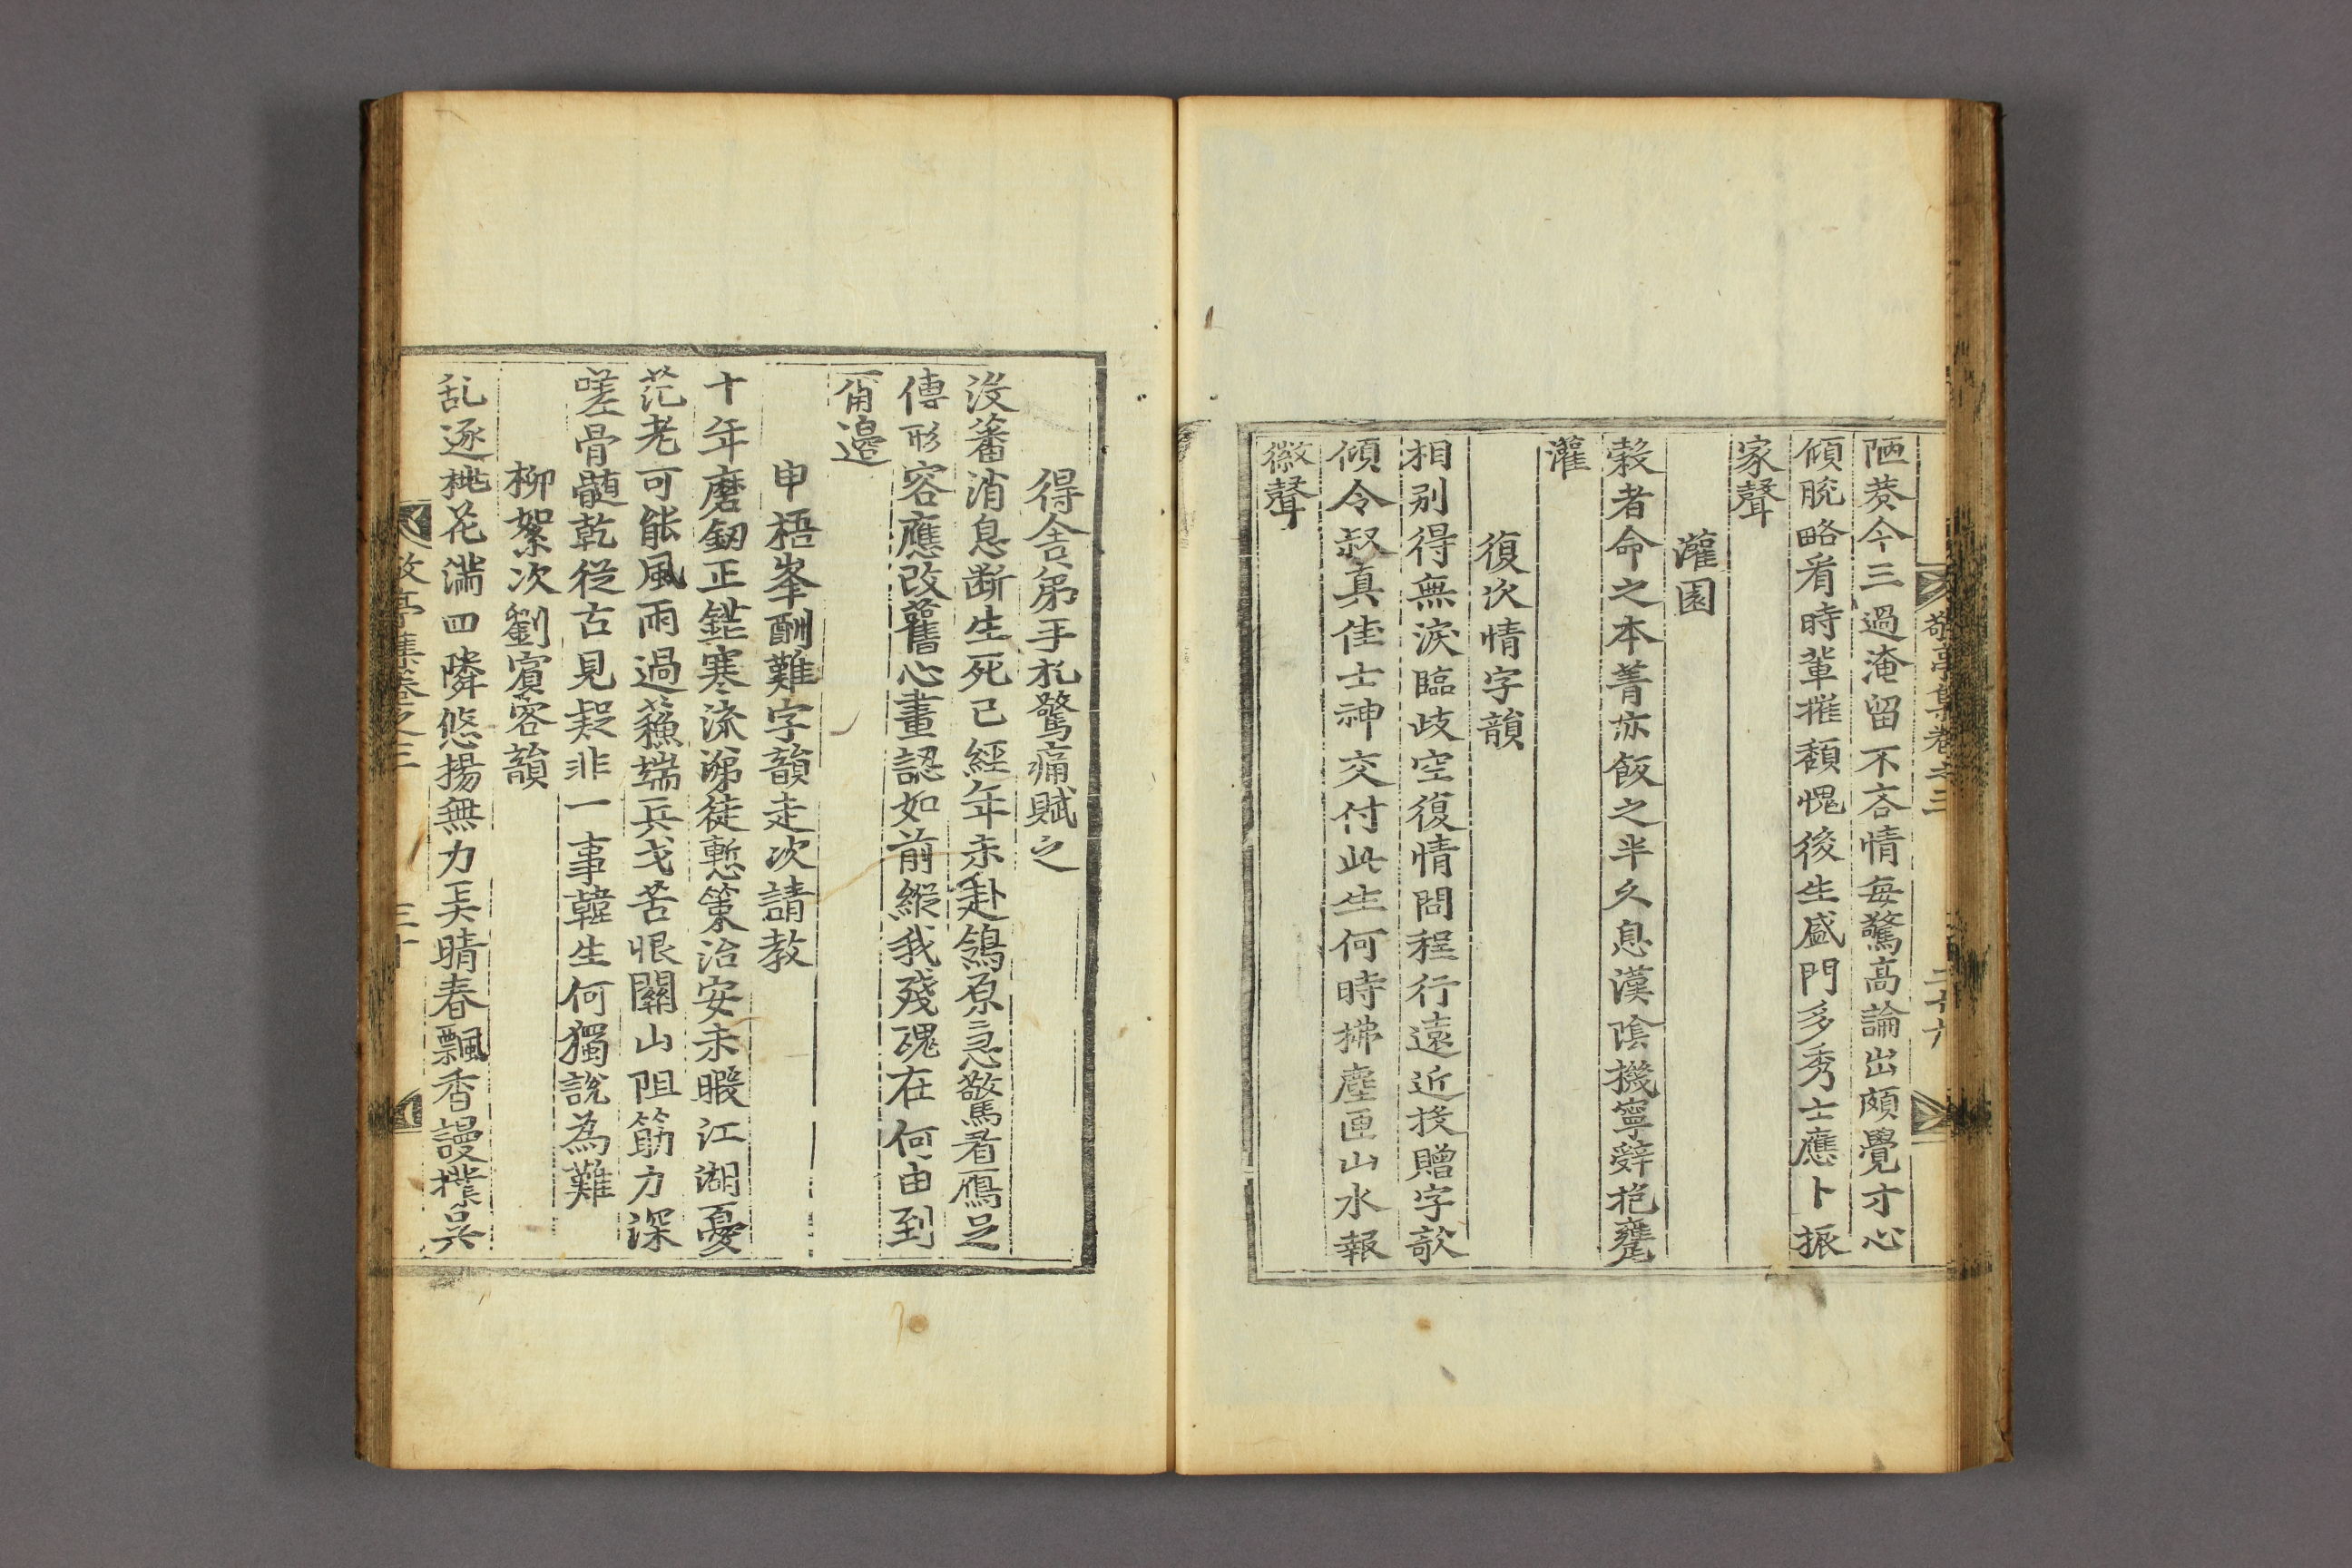 敬亭集卷之三 二十九
陋葵今三過淹留不吝情每驚高論出頗覺寸心
傾脫略看時輩摧頹愧後生盛門多秀士應卜振
家聲
灌園
穀者命之本菁亦飯之半久息漢陰機寧辭抱甕
灌
復次情字韻
相別得無淚臨歧空復情問程行遠近投贈字欹
傾令叔真佳士神交付此生何時拂塵匣山水報
徽聲
得舍弟手札驚痛賦之
沒蕃消息断生死已經年未赴鴒原急驚看鴈足
傳形容應改舊心畫認如前縱我殘魂在何由到
爾邊
申梧峯酬難字韻走次請教
十年磨釰正鋩寒流涕徒慙策治安未暇江湖憂
范老可能風雨過蘓端兵戈苦恨關山阻筋力深
嗟骨髓乾從古見疑非一事韓生何獨說為難
柳絮次劉賓客韻
乱逐桃花滿四隣悠揚無力天晴春飄香謾撲吳
敬亭集卷之三 三十